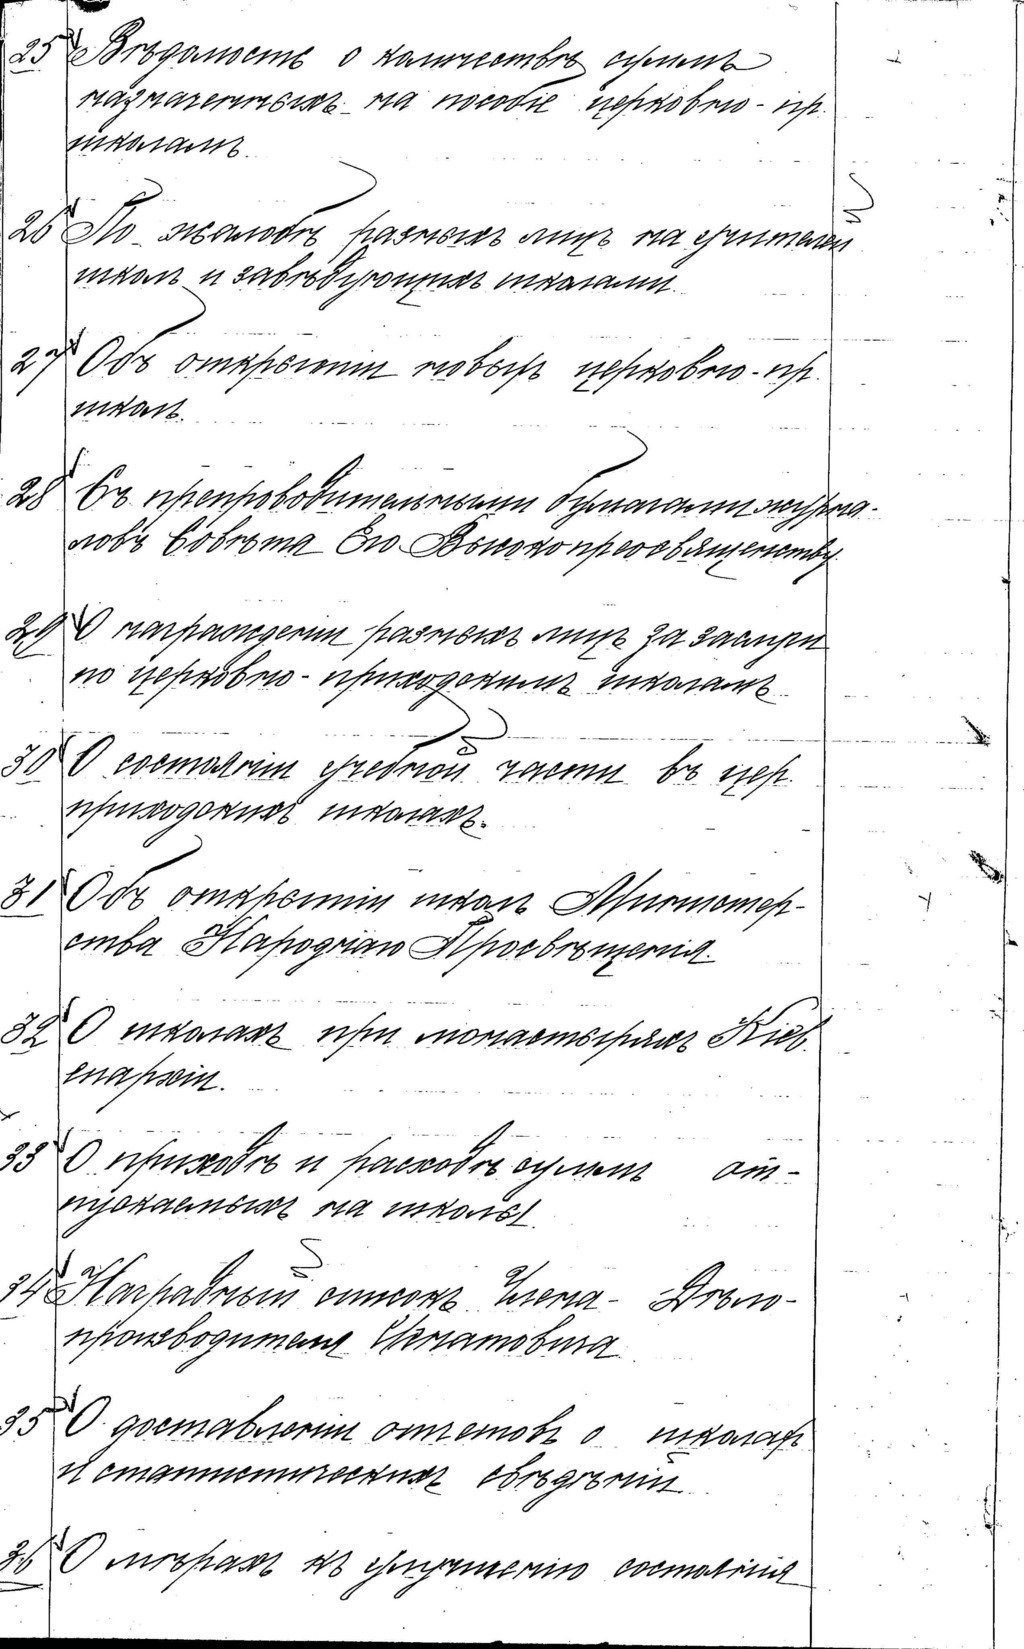 25 Вѣдомость о количествѣ суммъ
назначенныхъ на пособіе церковно-пр.
школамъ.
26 По жалобѣ разныхъ лицъ на учителей
школъ и завѣдующихъ школами.
27 Объ открытіи новыхъ церковно-пр.
школъ.
28 Съ препроводительными бумагами журна-
ловъ Совѣта Его Высокопреосвященству.
29 О награжденіи разныхъ лицъ за заслуги
по церковно-приходскимъ школамъ
30 О состояніи учебной части въ цер.
приходскихъ школахъ.
31 Объ открытіи школъ Министер-
ства Народнаго Просвѣщенія.
32 О школахъ при монастыряхъ Кіев.
епархіи.
33 О приходѣ и расходѣ суммъ от-
пускаемыхъ на школы.
34 Наградный списокъ Члена-Дѣло-
производителя Игнатовича
35 О доставленіи отчетовъ о школахъ
и статистическихъ свѣдѣній.
36 О мѣрахъ къ улучшенію состоянія